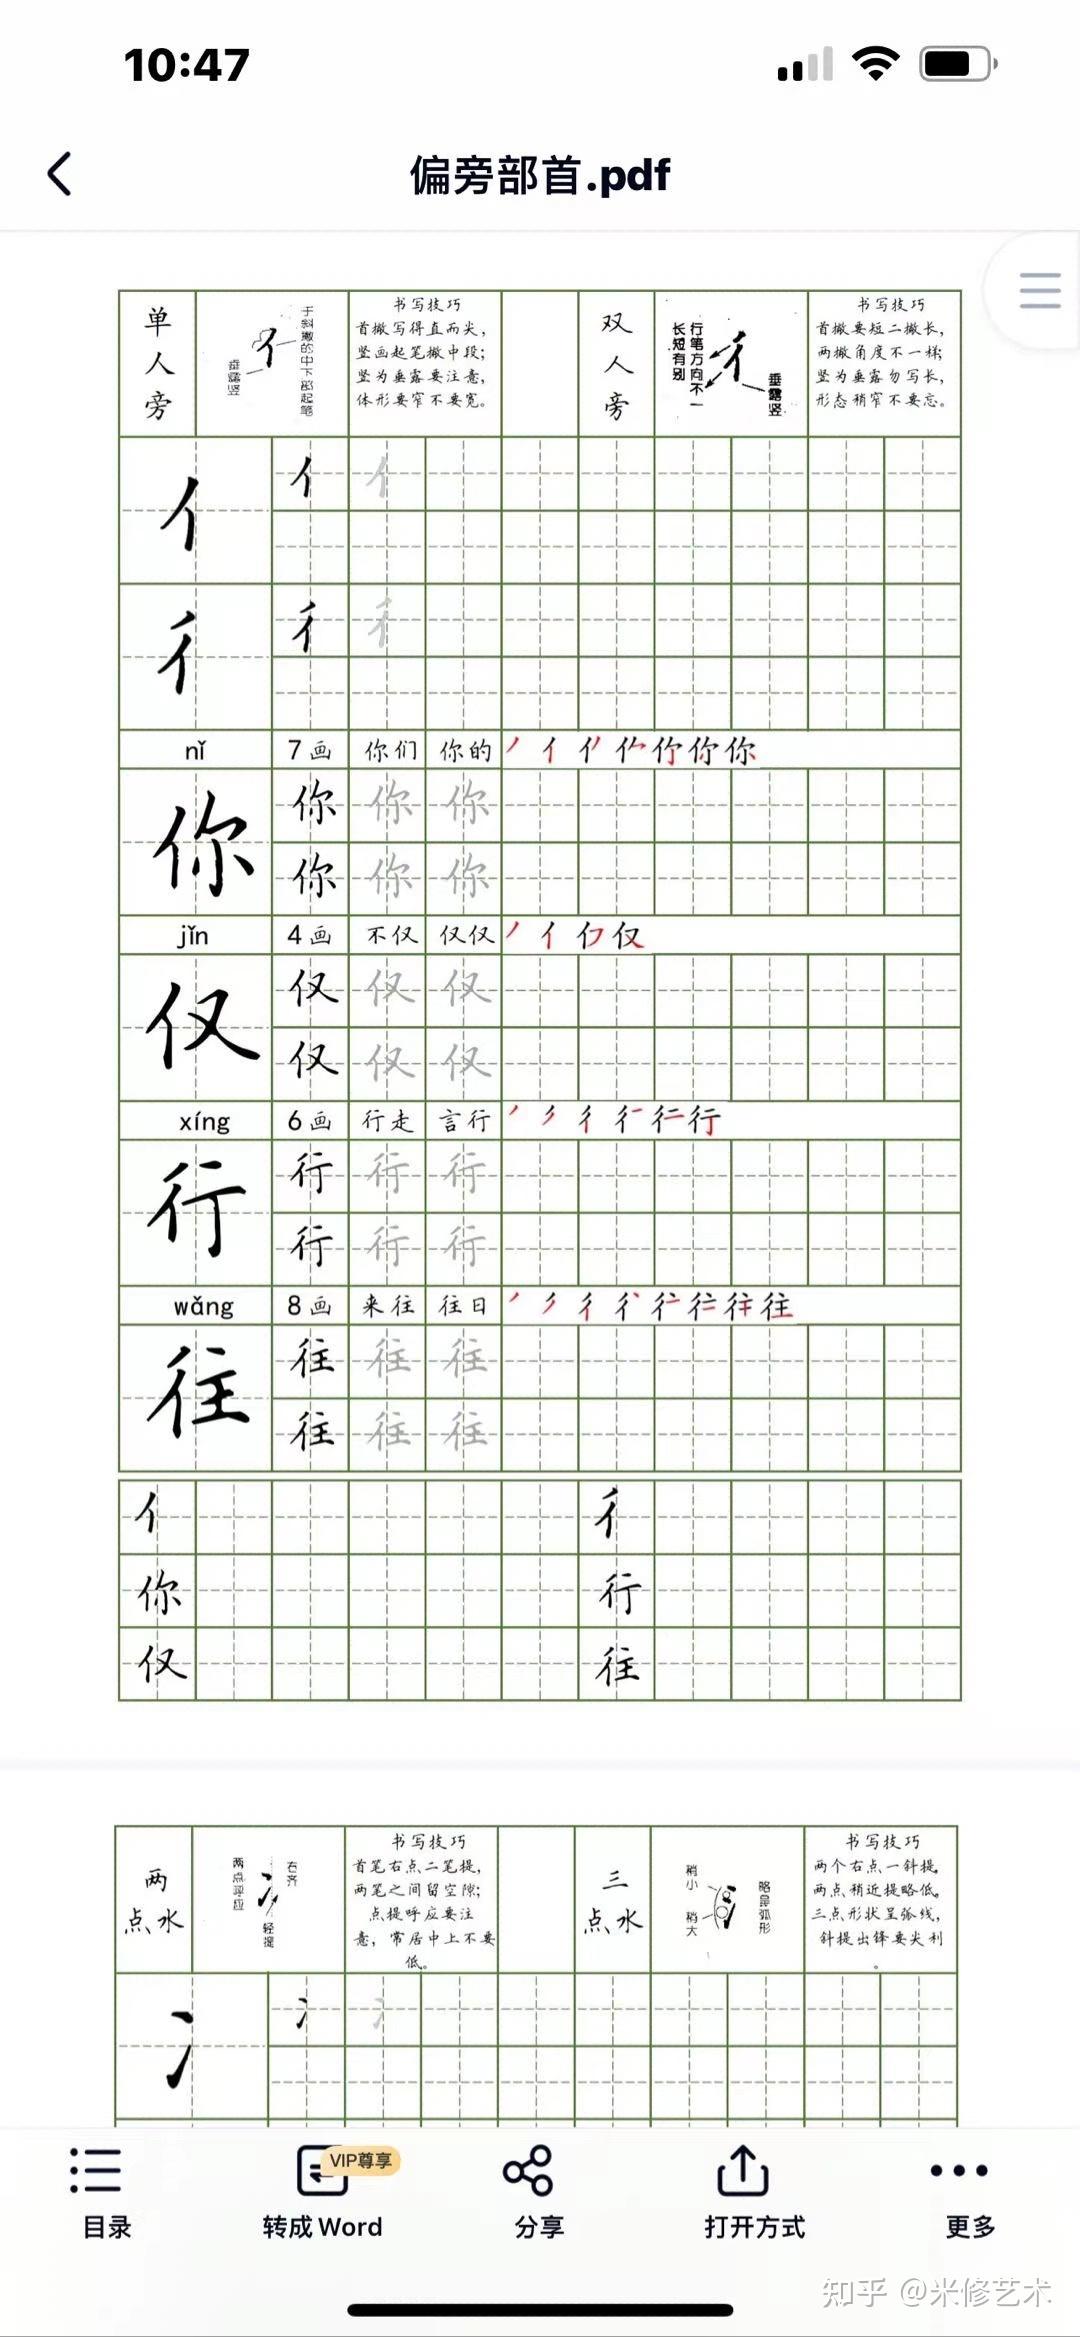 10:47
偏旁部首.pdf
单人旁
于斜撇的中下部起笔
垂露竖
书写技巧
首撇写得直而尖，
竖画起笔撇中段；
竖为垂露要注意，
体形要窄不要宽。
双人旁
行笔方向不一
长短有别
垂露竖
书写技巧
首撇要短二撇长，
两撇角度不一样；
竖为垂露勿写长，
形态稍窄不要忘。
亻 亻 亻
彳 彳 彳
nǐ 7画 你们 你的
你 你 你 你
你 你 你
jǐn 4画 不仅 仅仅
仅 仅 仅 仅
仅 仅 仅
xíng 6画 行走 言行
行 行 行 行
行 行 行
wǎng 8画 来往 往日
往 往 往 往
往 往 往
亻 彳
你 行
仅 往
两点水
两点呼应
右齐
轻提
书写技巧
首笔右点二笔提，
两笔之间留空隙；
点提呼应要注
意，常居中上不要
低。
三点水
稍小
稍大
略呈弧形
书写技巧
两个右点一斜提，
两点稍近提略低。
三点形状呈弧线，
斜提出锋要尖利
。
冫 冫 冫
VIP尊享
目录 转成Word 分享 打开方式 更多
知乎 @米修艺术